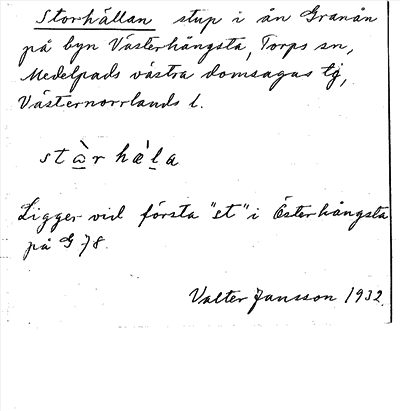 Storhällan stup i ån Granån
på byn Västerhångsta, Torps sn,
Medelpads västra domsagas tg,
Västernorrlands l.
Ligger vid första "st" i Österhångsta
på G 78.
Valter Jansson 1932.